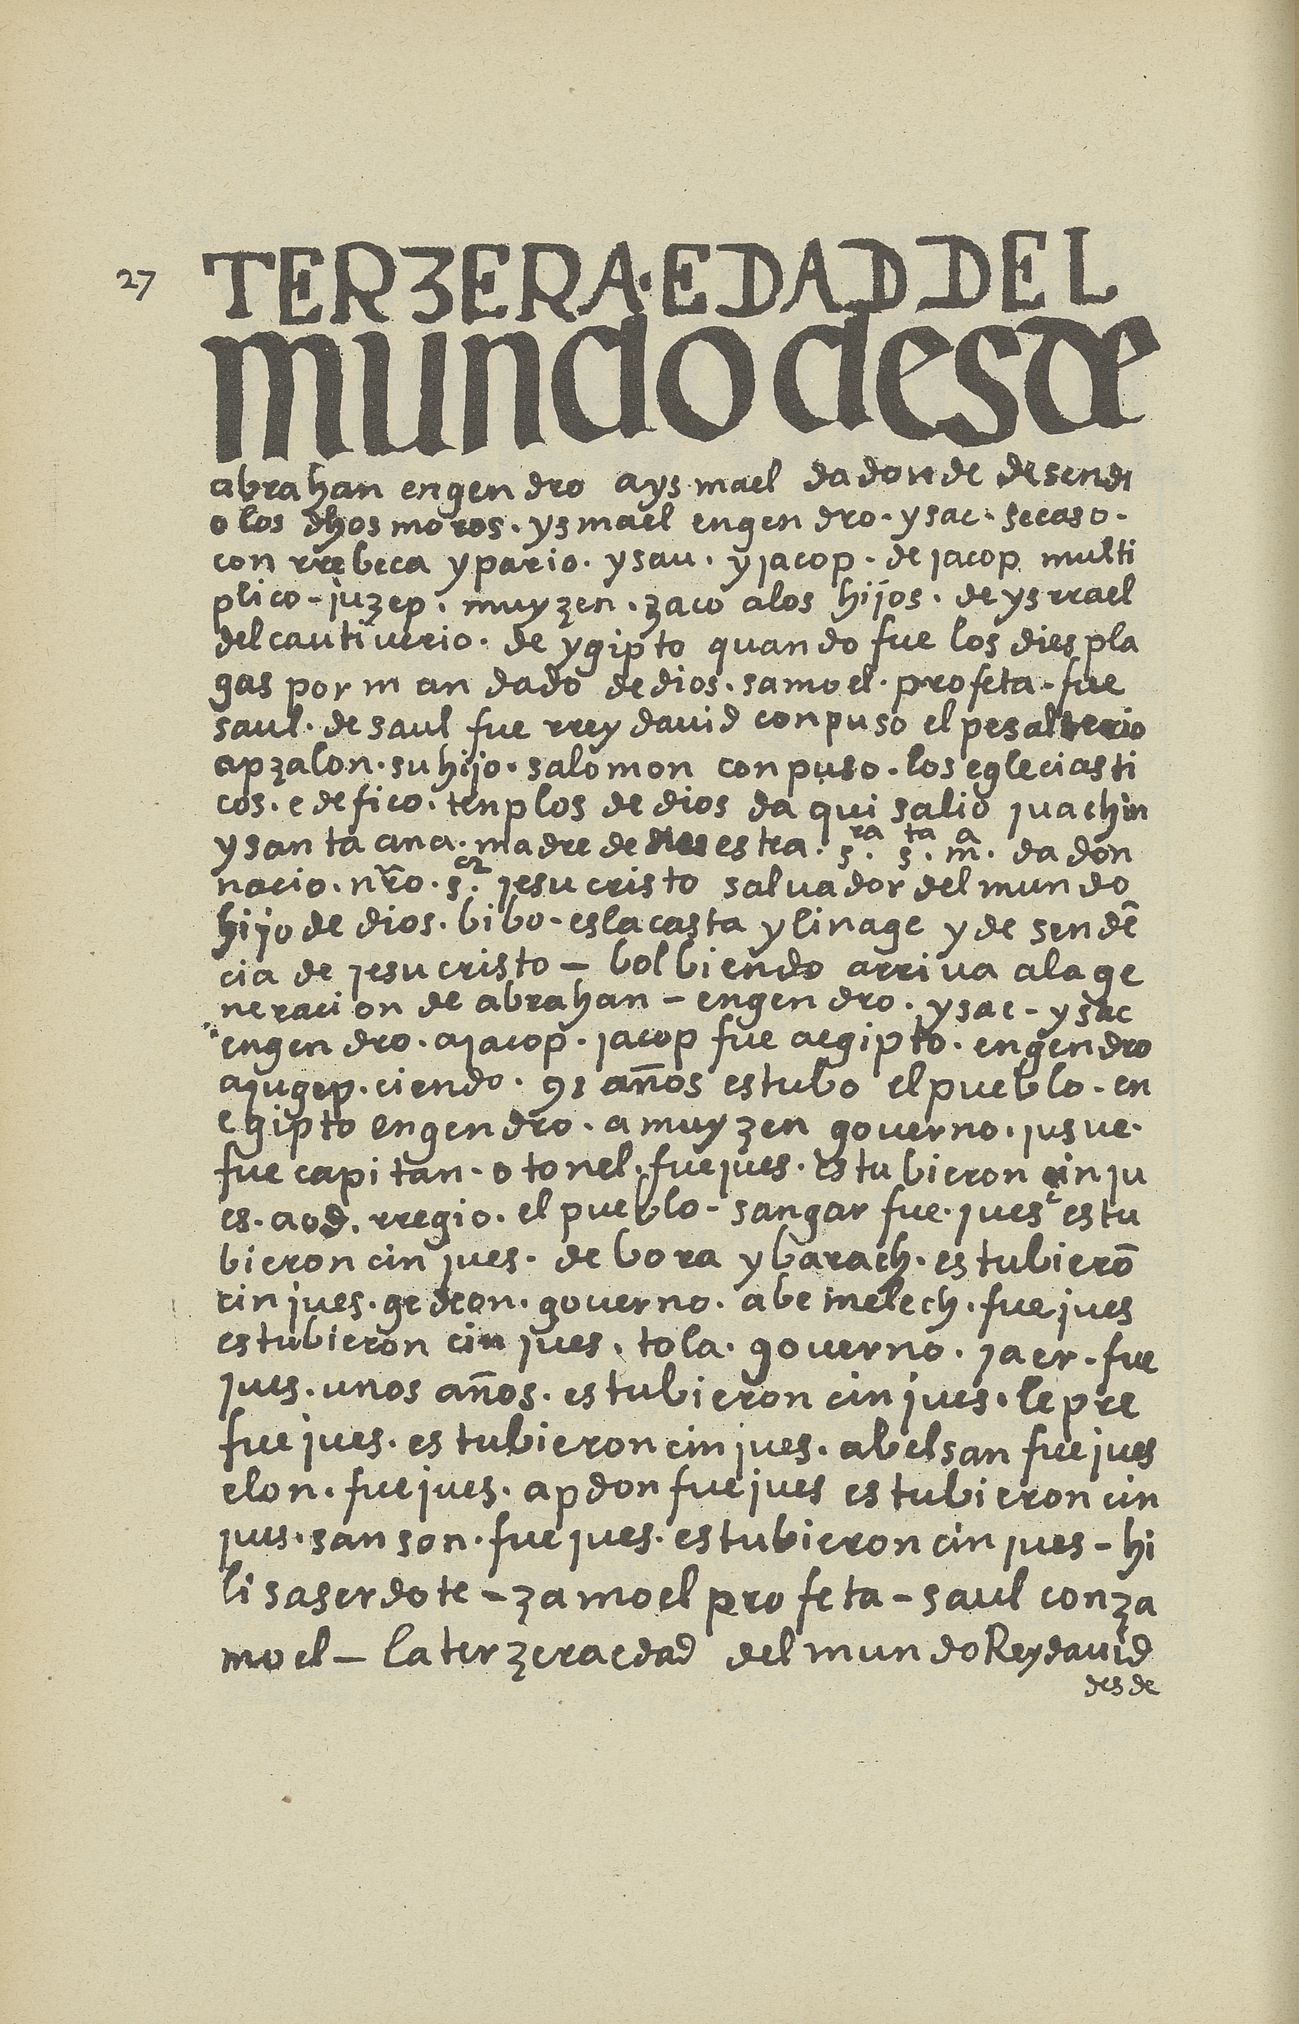 27
TERZERA·EDAD DEL
mundo desde
abrahan engendro a ysmael da donde desendi
o los dhos moros. ysmael engendro. ysac. se caso.
con rrebeca y pario. ysau. y jacop. de jacop multi
plico - juzep. muyzen. zaco a los hijos. de ysrrael
del cautiverio. de ygipto quando fue los dies pla
gas por mandado de dios. samoel. profeta. fue
saul. de saul fue rrey david conpuso el pesalterio
apzalon. su hijo. salomon conpuso. los egleciasti
cos. edefico. tenplos de dios da qui salio juachin
y santa ana. madre de nuestra. s.ra s.ta m.a da don
nacio. nr̃o. s.or jesucristo salvador del mundo
hijo de dios. bibo - es la casta y linage y desendẽ
cia de jesucristo — bolbiendo arriva a la ge
neracion de abrahan - engendro. ysac - ysac
engendro. a jacop. jacop fue a egipto. engendro
a jugep. ciendo. 91 años estubo el pueblo - en
egipto engendro. a muyzen governo. jusue.
fue capitan. otonel. fue jues. estubieron cin ju
es. aod. rregio. el pueblo - sangar fue. jues estu
bieron cin jues. debora y barach. estubierõ
cin jues. gedeon. governo. abemelech. fue jues
estubieron cin jues. tola. governo. jaer. fue
jues. unos años. estubieron cin jues. lepre
fue jues. estubieron cin jues. abelsan fue jues
elon. fue jues. apdon fue jues estubieron cin
jues. sanson. fue jues. estubieron cin jues - hi
li saserdote - zamoel profeta - saul con za
moel — la terzera edad del mundo Rey david
desde